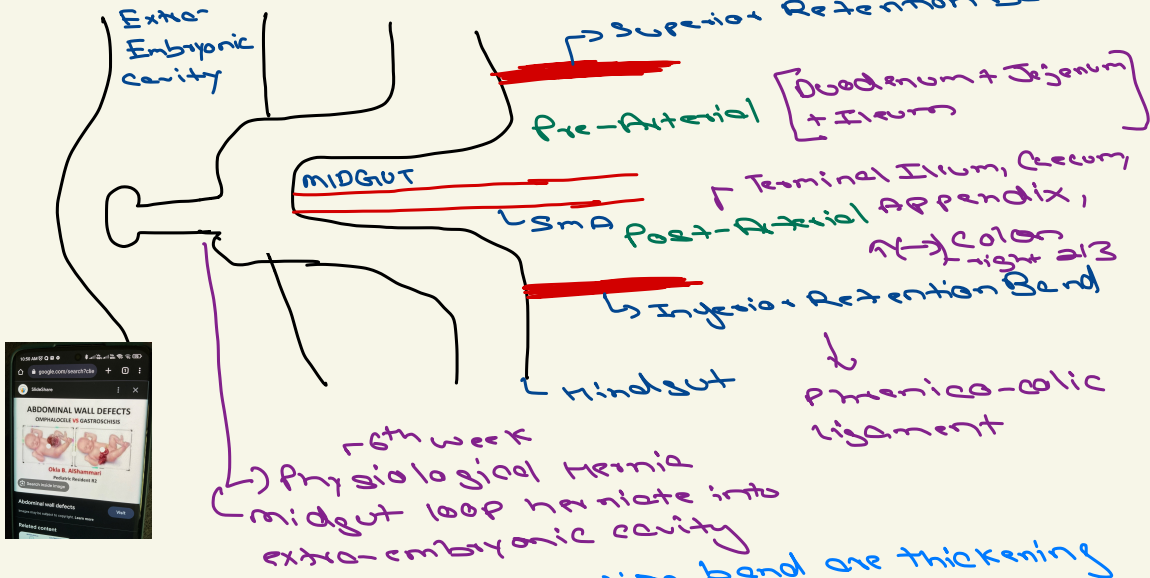 Extra-
Embryonic
cavity
Superior Retention
Pre-Arterial
[Duodenum + Jejenum
+ Ileum]
MIDGUT
SMA
Terminal Ilium, Caecum,
Post-Arterial
Appendix,
Colon
right 2/3
Inferior Retention Band
Phrenico-colic
ligament
Hindgut
6th week
Physiological Hernia
midgut loop herniate into
extra-embryonic cavity
band are thickening
10:50 AM
google.com/search?clie
SlideShare
ABDOMINAL WALL DEFECTS
OMPHALOCELE VS GASTROSCHISIS
Okla B. AlShammari
Pediatric Resident R2
Search inside image
Abdominal wall defects
Images may be subject to copyright. Learn more
Visit
Related content